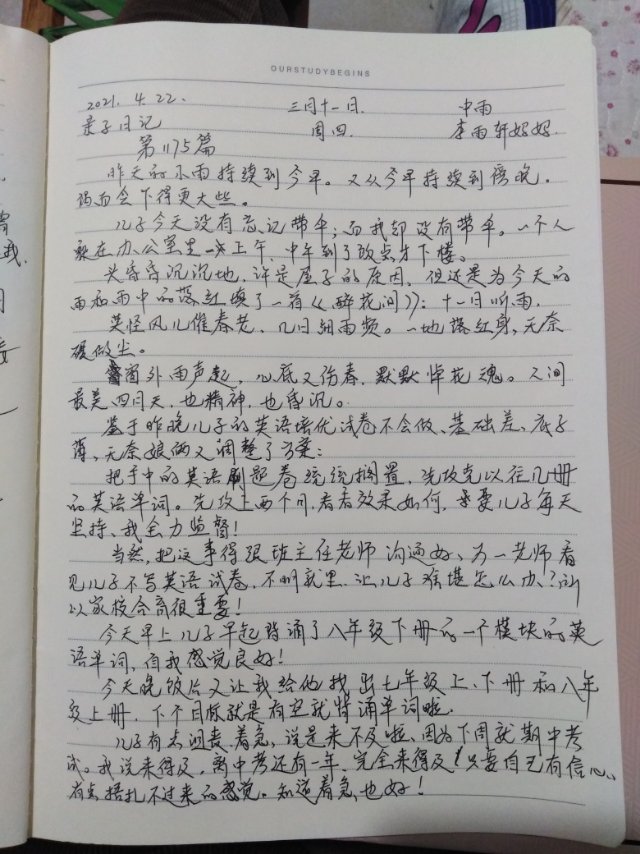 OURSTUDYBEGINS
2021. 4. 22. 三月十一日. 中雨
亲子日记 周四 李雨轩妈妈.
第1175篇
昨天的小雨持续到今早。又从今早持续到傍晚。
偶而会下得更大些。
儿子今天没有忘记带伞；而我却没有带伞。一个人
在办公室里 上午，中午到了放点才下楼。
头昏昏沉沉地，许是屋子的原因，但还是为今天的
雨和雨中的落红填了一首《醉花间》：十一日听雨.
莫怪风儿催春老，几日细雨频。一地落红身，无奈
碾做尘。
窗外雨声起，心底又伤春，默默悼花魂。人间
最美四月天，也精神，也昏沉。
鉴于昨晚儿子的英语培优试卷不会做、基础差、底子
薄，无奈娘俩又调整了方案：
把手中的英语刷题卷统统搁置，先攻克以往几册
的英语单词。先攻上两个月，看看效果如何，要儿子每天
坚持、我全力监督！
当然，把这事得跟班主任老师沟通好、万一老师看
见儿子不写英语试卷，不明就里，让儿子难堪怎么办？所
以家校合育很重要！
今天早上儿子早起背诵了八年级下册的一个模块的英
语单词，自我感觉良好！
今天晚饭后又让我给他找出七年级上、下册和八年
级上册，下个目标就是有空就背诵单词啦.
儿子有点沮丧、着急，说是来不及啦、因为下周就期中考
试。我说来得及，离中考还有一年，完全来得及！只要自己有信心、
有点 扎不过来的感觉。知道着急也好！